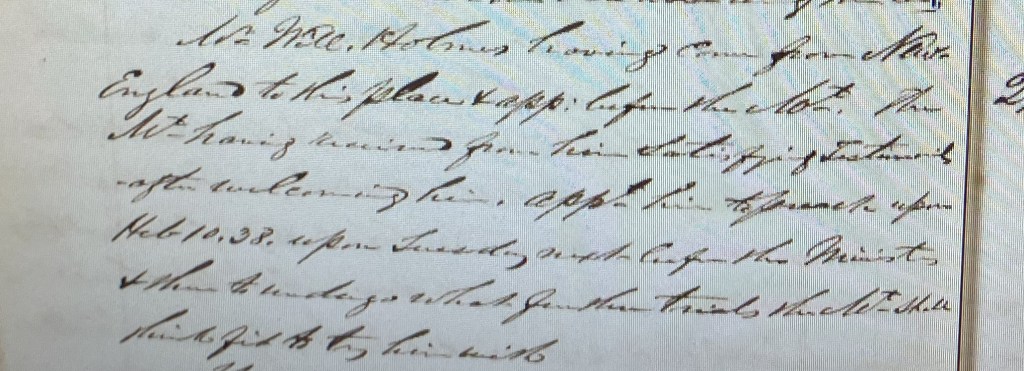 Mr. Will. Holmes having come from New-
England to this place & app: before the Mtg. The
Mtg having received from him Satisfying Testimonials
after welcoming him. appt him to preach upon
Heb 10.38. upon Tuesday next before the Ministers
& then to undergo what further trials the Mtg shall
think fit to try him with